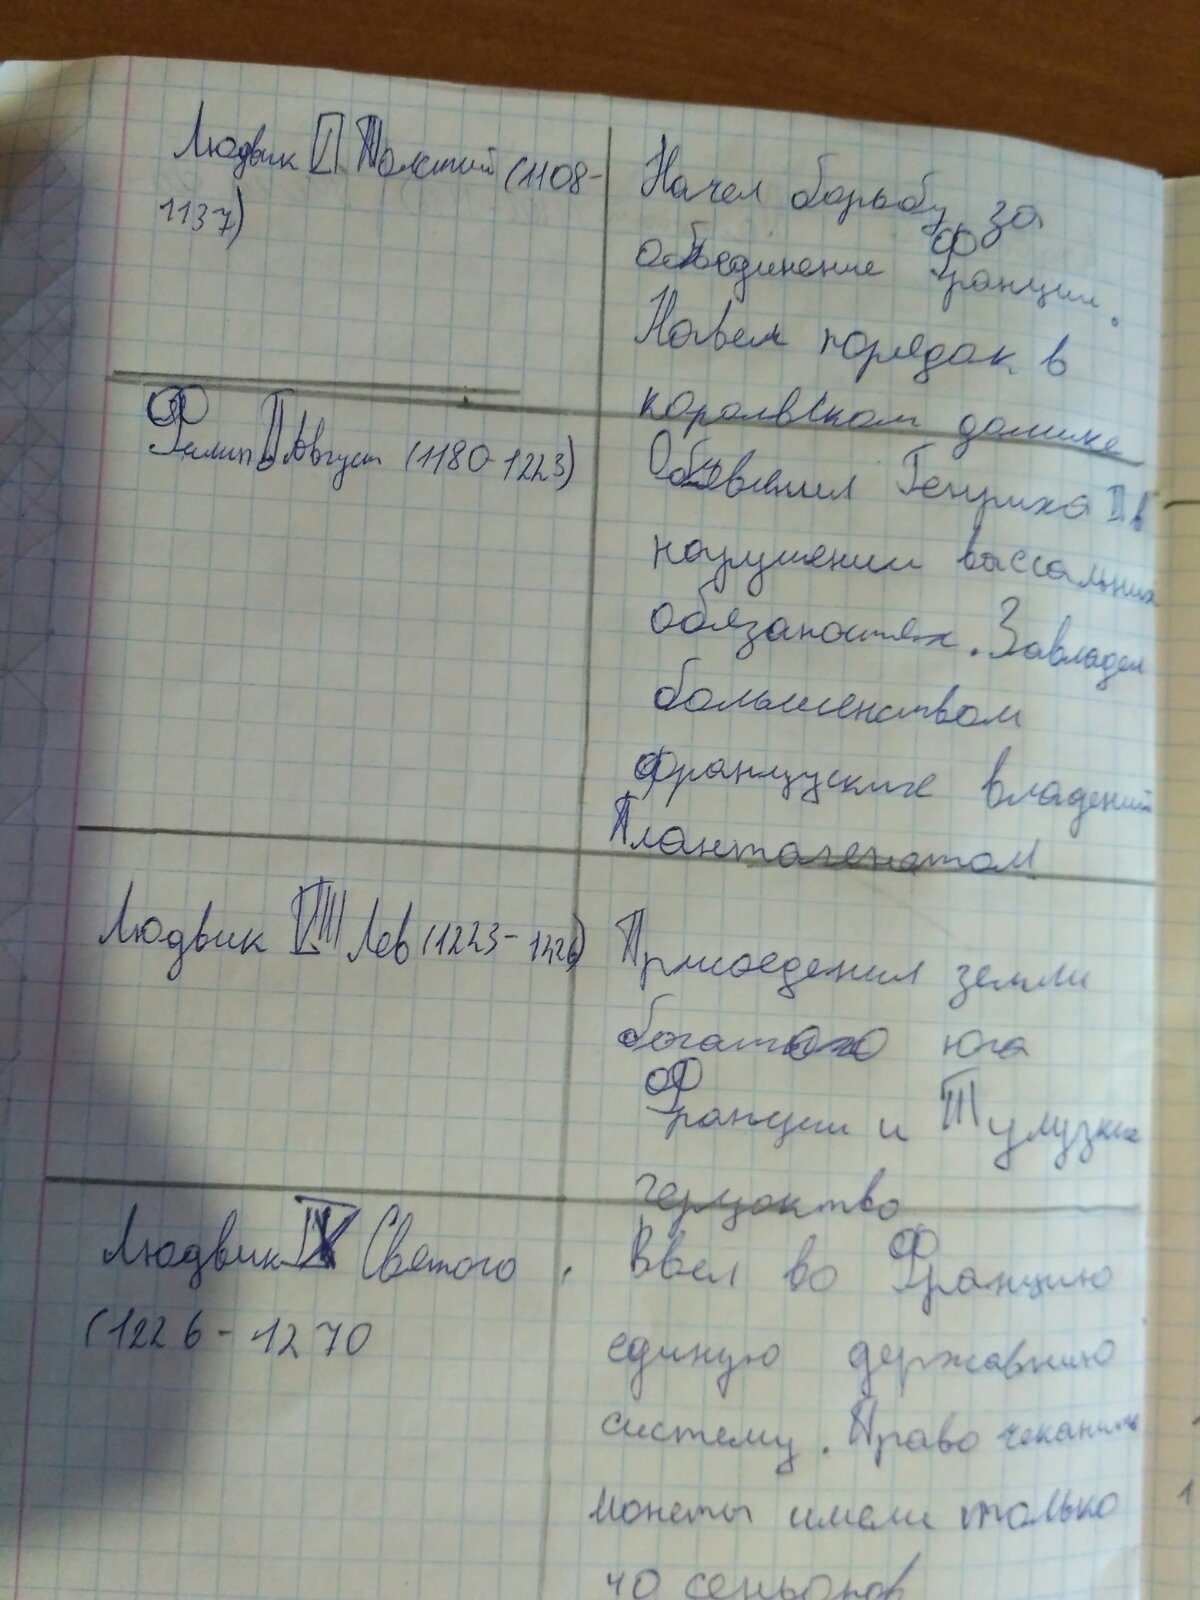 Людвик VI Толстий (1108-
1137)
Начел борьбу за
объединение Франции.
Навел порядок в
королвском домине
Филип II Август (1180-1223)
Обявинил Генриха II в
нарушении вассальних
обязаностях. Завладел
большенством
француские владений
Плантагенатом
Людвик VIII Лев (1223-1226)
Присоеденил земли
богатого юга
Франции и Тулузкие
герцоктво
Людвик IX Святого
(1226-1270
Ввел во Францию
единую державнию
систему. Право чеканить
монеты имели только
40 сеньоров